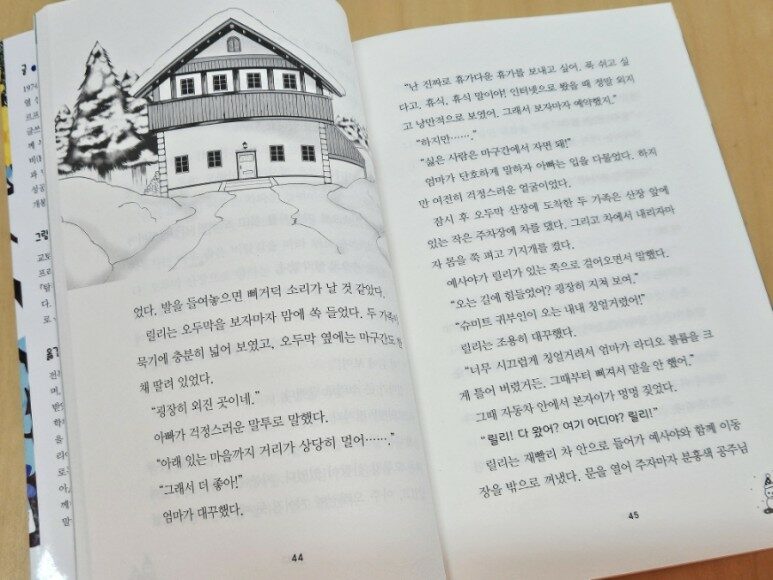 었다. 발을 들여놓으면 삐거덕 소리가 날 것 같았다.
릴리는 오두막을 보자마자 맘에 쏙 들었다. 두 가족이
묵기에 충분히 넓어 보였고, 오두막 옆에는 마구간도 한
채 딸려 있었다.
“굉장히 외진 곳이네.”
아빠가 걱정스러운 말투로 말했다.
“아래 있는 마을까지 거리가 상당히 멀어…….”
“그래서 더 좋아!”
엄마가 대꾸했다.
44
“난 진짜로 휴가다운 휴가를 보내고 싶어. 푹 쉬고 싶
다고. 휴식, 휴식 말이야! 인터넷으로 봤을 때 정말 외지
고 낭만적으로 보였어. 그래서 보자마자 예약했지.”
“하지만…….”
“싫은 사람은 마구간에서 자면 돼!”
엄마가 단호하게 말하자 아빠는 입을 다물었다. 하지
만 여전히 걱정스러운 얼굴이었다.
잠시 후 오두막 산장에 도착한 두 가족은 산장 앞에
있는 작은 주차장에 차를 댔다. 그리고 차에서 내리자마
자 몸을 쭉 펴고 기지개를 켰다.
예사야가 릴리가 있는 쪽으로 걸어오면서 말했다.
“오는 길에 힘들었어? 굉장히 지쳐 보여.”
“슈미트 귀부인이 오는 내내 칭얼거렸어!”
릴리는 조용히 대꾸했다.
“너무 시끄럽게 칭얼거려서 엄마가 라디오 볼륨을 크
게 틀어 버렸거든. 그때부터 삐져서 말을 안 했어.”
그때 자동차 안에서 본자이가 멍멍 짖었다.
“릴리! 다 왔어? 여기 어디야? 릴리!”
릴리는 재빨리 차 안으로 들어가 예사야와 함께 이동
장을 밖으로 꺼냈다. 문을 열어 주자마자 분홍색 공주님
45